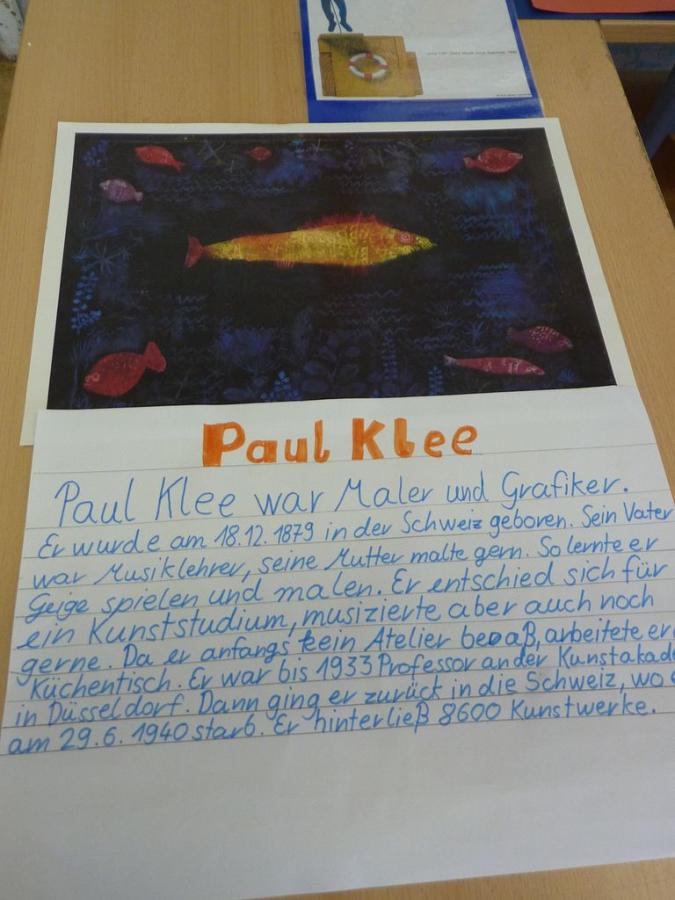 Paul Klee
Paul Klee war Maler und Grafiker.
Er wurde am 18.12.1879 in der Schweiz geboren. Sein Vater
war Musiklehrer, seine Mutter malte gern. So lernte er
Geige spielen und malen. Er entschied sich für
ein Kunststudium, musizierte aber auch noch
gerne. Da er anfangs kein Atelier besaß, arbeitete er
Küchentisch. Er war bis 1933 Professor an der Kunstakad
in Düsseldorf. Dann ging er zurück in die Schweiz, wo
am 29.6.1940 starb. Er hinterließ 8600 Kunstwerke.